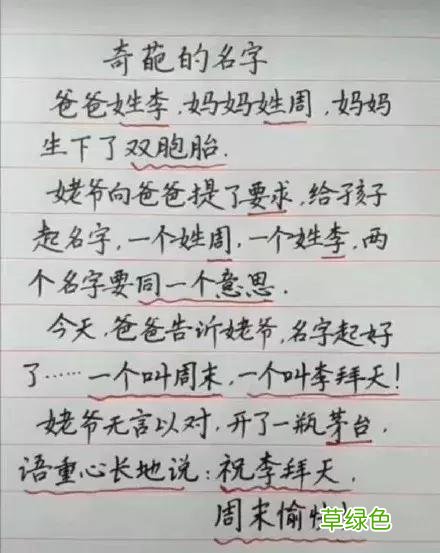 奇葩的名字
爸爸姓李,妈妈姓周,妈妈
生下了双胞胎.
姥爷向爸爸提了要求,给孩子
起名字,一个姓周,一个姓李,两
个名字要同一个意思.
今天,爸爸告诉姥爷,名字起好
了……一个叫周末,一个叫李拜天!
姥爷无言以对,开了一瓶茅台.
语重心长地说:祝李拜天.
周末愉快!
草绿色